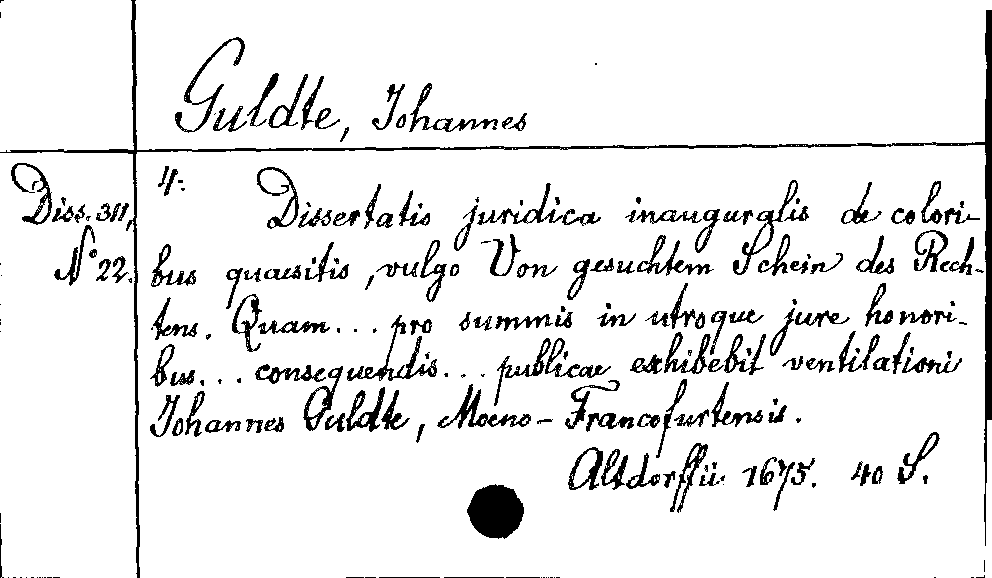 Guldte, Johannes
Diss. 311,
N° 22.
4:
Dissertatio juridica inauguralis de colori-
bus quaesitis, vulgo Von gesuchtem Schein des Rech-
tens. Quam... pro summis in utroque jure honori-
bus... consequendis... publicae exhibebit ventilationi
Johannes Guldte, Moeno-Francofurtensis.
Altdorffii 1675. 40 S.